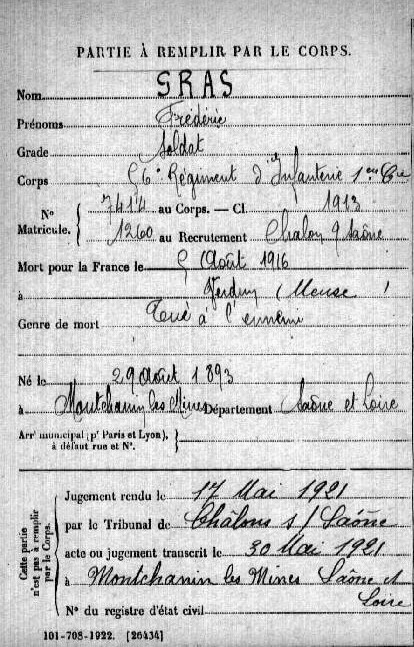 PARTIE À REMPLIR PAR LE CORPS.
Nom GRAS
Prénoms Frédéric
Grade Soldat
Corps 56e Régiment d'Infanterie 1ere Cie
No Matricule. { 7414 au Corps. — Cl. 1913
1260 au Recrutement Chalon s/ Saône
Mort pour la France le 5 Août 1916
à Verdun (Meuse)
Genre de mort Tué à l'ennemi
Né le 29 Août 1893
à Montchanin les Mines Département Saône et Loire
Arrt municipal (pr Paris et Lyon), à défaut rue et No. }
Cette partie n'est pas à remplir par le Corps.
Jugement rendu le 17 Mai 1921
par le Tribunal de Châlons s/ Saône
acte ou jugement transcrit le 30 Mai 1921
à Montchanin les Mines Saône et
Loire
No du registre d'état civil
101-708-1922. [26434]